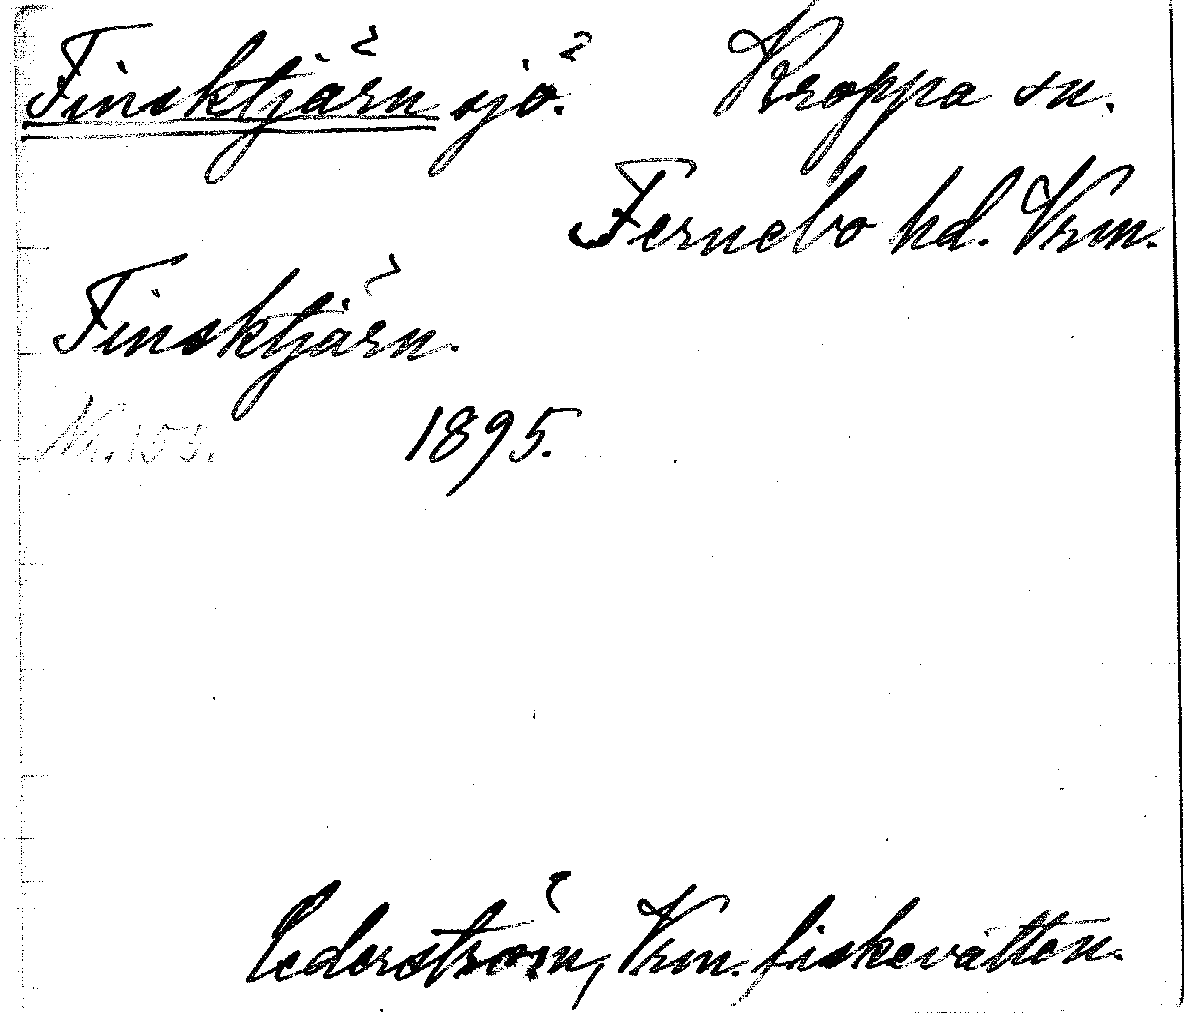 Finsktjärn sjö. Kroppa sn.
Fernebo hd. Vrm.
Finsktjärn.
Nr. 153. 1895.
Cederström, Vrm. fiskevatten.